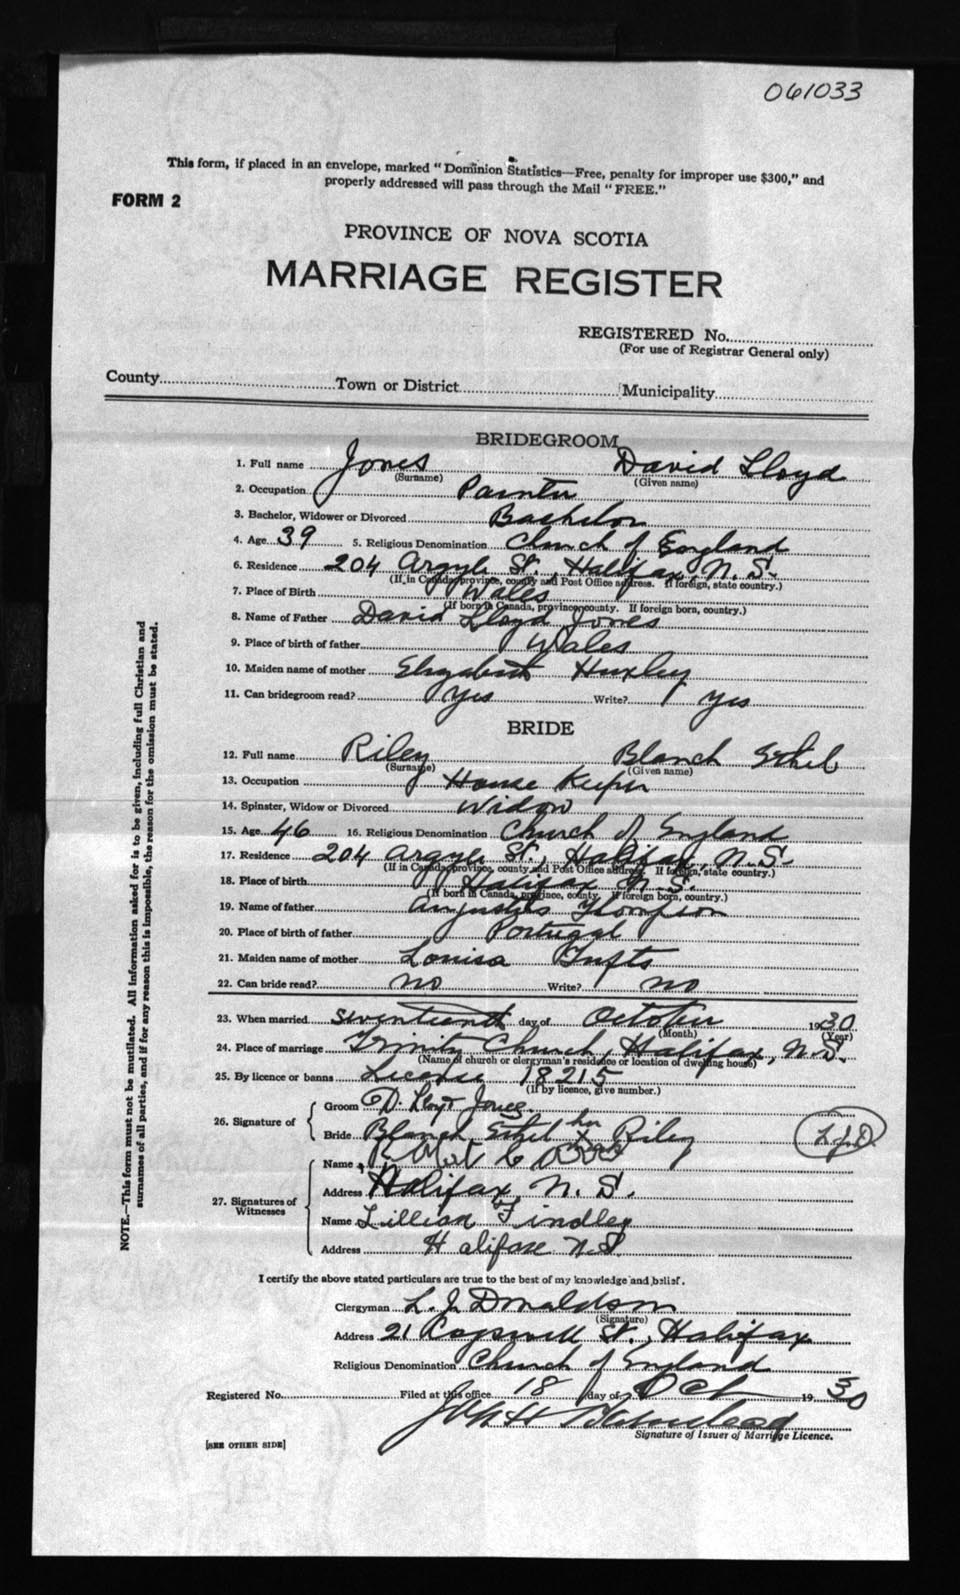 061033
This form, if placed in an envelope, marked "Dominion Statistics—Free, penalty for improper use $300," and
properly addressed will pass through the Mail "FREE."
FORM 2
PROVINCE OF NOVA SCOTIA
MARRIAGE REGISTER
REGISTERED No.
(For use of Registrar General only)
County Town or District Municipality
BRIDEGROOM
1. Full name Jones David Lloyd
(Surname) (Given name)
2. Occupation Painter
3. Bachelor, Widower or Divorced Bachelor
4. Age 39 5. Religious Denomination Church of England
6. Residence 204 Argyle St., Halifax, N.S.
(If in Canada, province, county and Post Office address. If foreign, state country.)
7. Place of Birth Wales
(If born in Canada, province, county. If foreign born, country.)
8. Name of Father David Lloyd Jones
9. Place of birth of father Wales
10. Maiden name of mother Elizabeth Huxley
11. Can bridegroom read? Yes Write? Yes
BRIDE
12. Full name Riley Blanch Ethel
(Surname) (Given name)
13. Occupation House Keeper
14. Spinster, Widow or Divorced Widow
15. Age 46 16. Religious Denomination Church of England
17. Residence 204 Argyle St., Halifax, N.S.
(If in Canada, province, county and Post Office address. If foreign, state country.)
18. Place of birth Halifax N.S.
(If born in Canada, province, county. If foreign born, country.)
19. Name of father Augustus Thompson
20. Place of birth of father Portugal
21. Maiden name of mother Louisa Tufts
22. Can bride read? no Write? no
23. When married seventeenth day of October 1930
(Month) (Year)
24. Place of marriage Trinity Church, Halifax, N.S.
(Name of church or clergyman's residence or location of dwelling house)
25. By licence or banns Licence 18215
(If by licence, give number.)
26. Signature of
Groom D. Lloyd Jones.
Bride Blanch Ethel her X Riley
L.J.D.
27. Signatures of Witnesses
Name
Address Halifax, N.S.
Name Lillian Findley
Address Halifax N.S.
I certify the above stated particulars are true to the best of my knowledge and belief.
Clergyman L. J. Donaldson
(Signature)
Address 21 Cogswell St., Halifax
Religious Denomination Church of England
Registered No. Filed at this office 18 day of Oct 1930
Signature of Issuer of Marriage Licence.
[SEE OTHER SIDE]
NOTE.—This form must not be mutilated. All information asked for is to be given, including full Christian and
surnames of all parties, and if for any reason this is impossible, the reason for the omission must be stated.